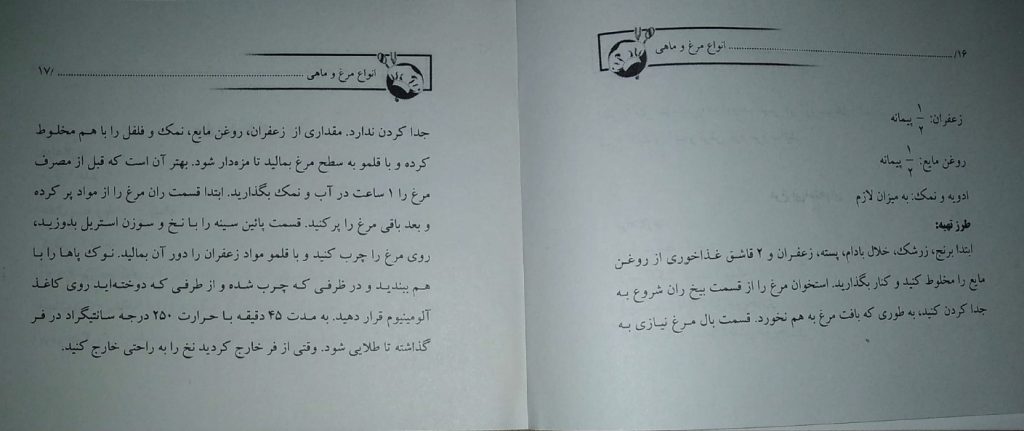 ۱۶/ ........ انواع مرغ و ماهی
زعفران: ۱/۲ پیمانه
روغن مایع: ۱/۲ پیمانه
ادویه و نمک: به میزان لازم
طرز تهیه:
ابتدا برنج، زرشک، خلال بادام، پسته، زعفران و ۲ قاشق غذاخوری از روغن
مایع را مخلوط کنید و کنار بگذارید. استخوان مرغ را از قسمت بیخ ران شروع به
جدا کردن کنید، به طوری که بافت مرغ به هم نخورد. قسمت بال مرغ نیازی به
انواع مرغ و ماهی ........ /۱۷
جدا کردن ندارد. مقداری از زعفران، روغن مایع، نمک و فلفل را با هم مخلوط
کرده و با قلمو به سطح مرغ بمالید تا مزه‌دار شود. بهتر آن است که قبل از مصرف
مرغ را ۱ ساعت در آب و نمک بگذارید. ابتدا قسمت ران مرغ را از مواد پر کرده
و بعد باقی مرغ را پر کنید. قسمت پائین سینه را با نخ و سوزن استریل بدوزید،
روی مرغ را چرب کنید و با قلمو مواد زعفران را دور آن بمالید. نوک پاها را با
هم ببندید و در ظرفی که چرب شده و از طرفی که دوخته‌اید روی کاغذ
آلومینیوم قرار دهید. به مدت ۴۵ دقیقه با حرارت ۲۵۰ درجه سانتیگراد در فر
گذاشته تا طلایی شود. وقتی از فر خارج کردید نخ را به راحتی خارج کنید.